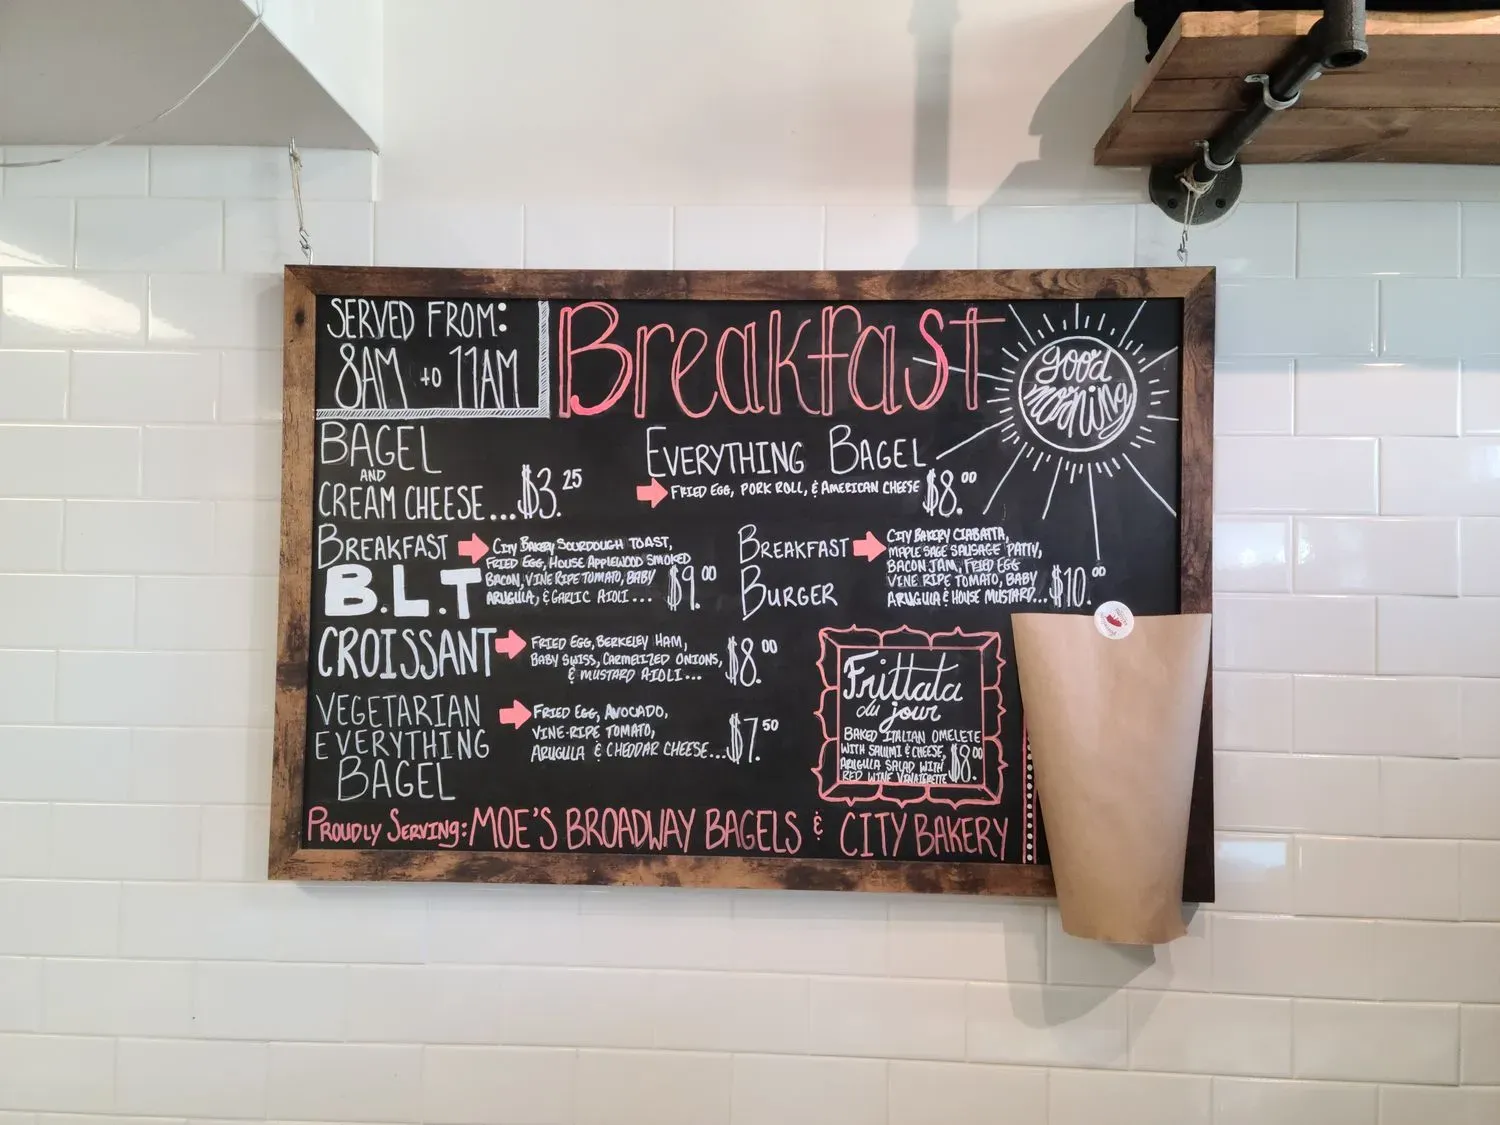 SERVED FROM:
8AM TO 11AM
Breakfast
good
morning
BAGEL
AND
CREAM CHEESE...$3.25
EVERYTHING BAGEL
FRIED EGG, PORK ROLL, & AMERICAN CHEESE $8.00
BREAKFAST
B.L.T
CITY BAKERY SOURDOUGH TOAST,
FRIED EGG, HOUSE APPLEWOOD SMOKED
BACON, VINE RIPE TOMATO, BABY
ARUGULA, & GARLIC AIOLI... $9.00
BREAKFAST
BURGER
CITY BAKERY CIABATTA,
MAPLE SAGE SAUSAGE PATTY,
BACON JAM, FRIED EGG
VINE RIPE TOMATO, BABY
ARUGULA & HOUSE MUSTARD...$10.00
CROISSANT
FRIED EGG, BERKELEY HAM,
BABY SWISS, CARMELIZED ONIONS,
& MUSTARD AIOLI... $8.00
VEGETARIAN
EVERYTHING
BAGEL
FRIED EGG, AVOCADO,
VINE-RIPE TOMATO,
ARUGULA & CHEDDAR CHEESE...$7.50
Frittata
du jour
BAKED ITALIAN OMELETE
WITH SALUMI & CHEESE,
ARUGULA SALAD WITH
RED WINE VINAIGRETTE $8.00
PROUDLY SERVING: MOE'S BROADWAY BAGELS & CITY BAKERY